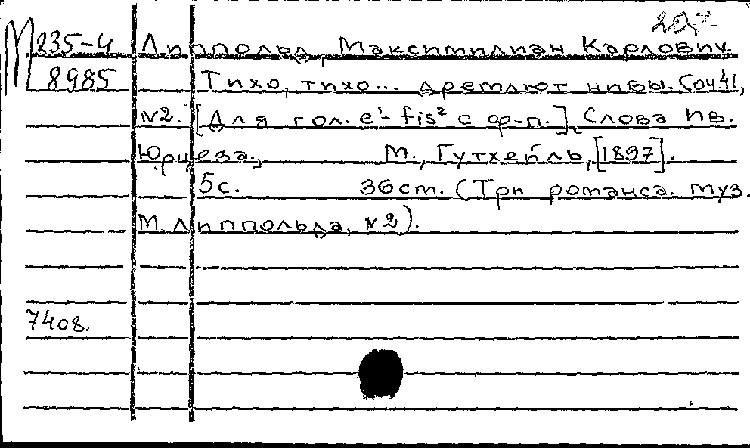 М 835-4 Липпольд, Максимилиан Карлович.
8985 Тихо, тихо... дремлют нивы. Соч 41,
№2. [Для гол. e¹- fis² с ф-п.] Слова Ив.
Юрцева. М., Гутхейль, [1897].
5с. 36см. (Три романса. муз.
М. Липпольда, №2).
7408.